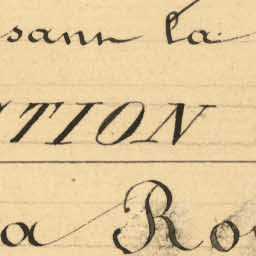 sann la
CTION
a Ro